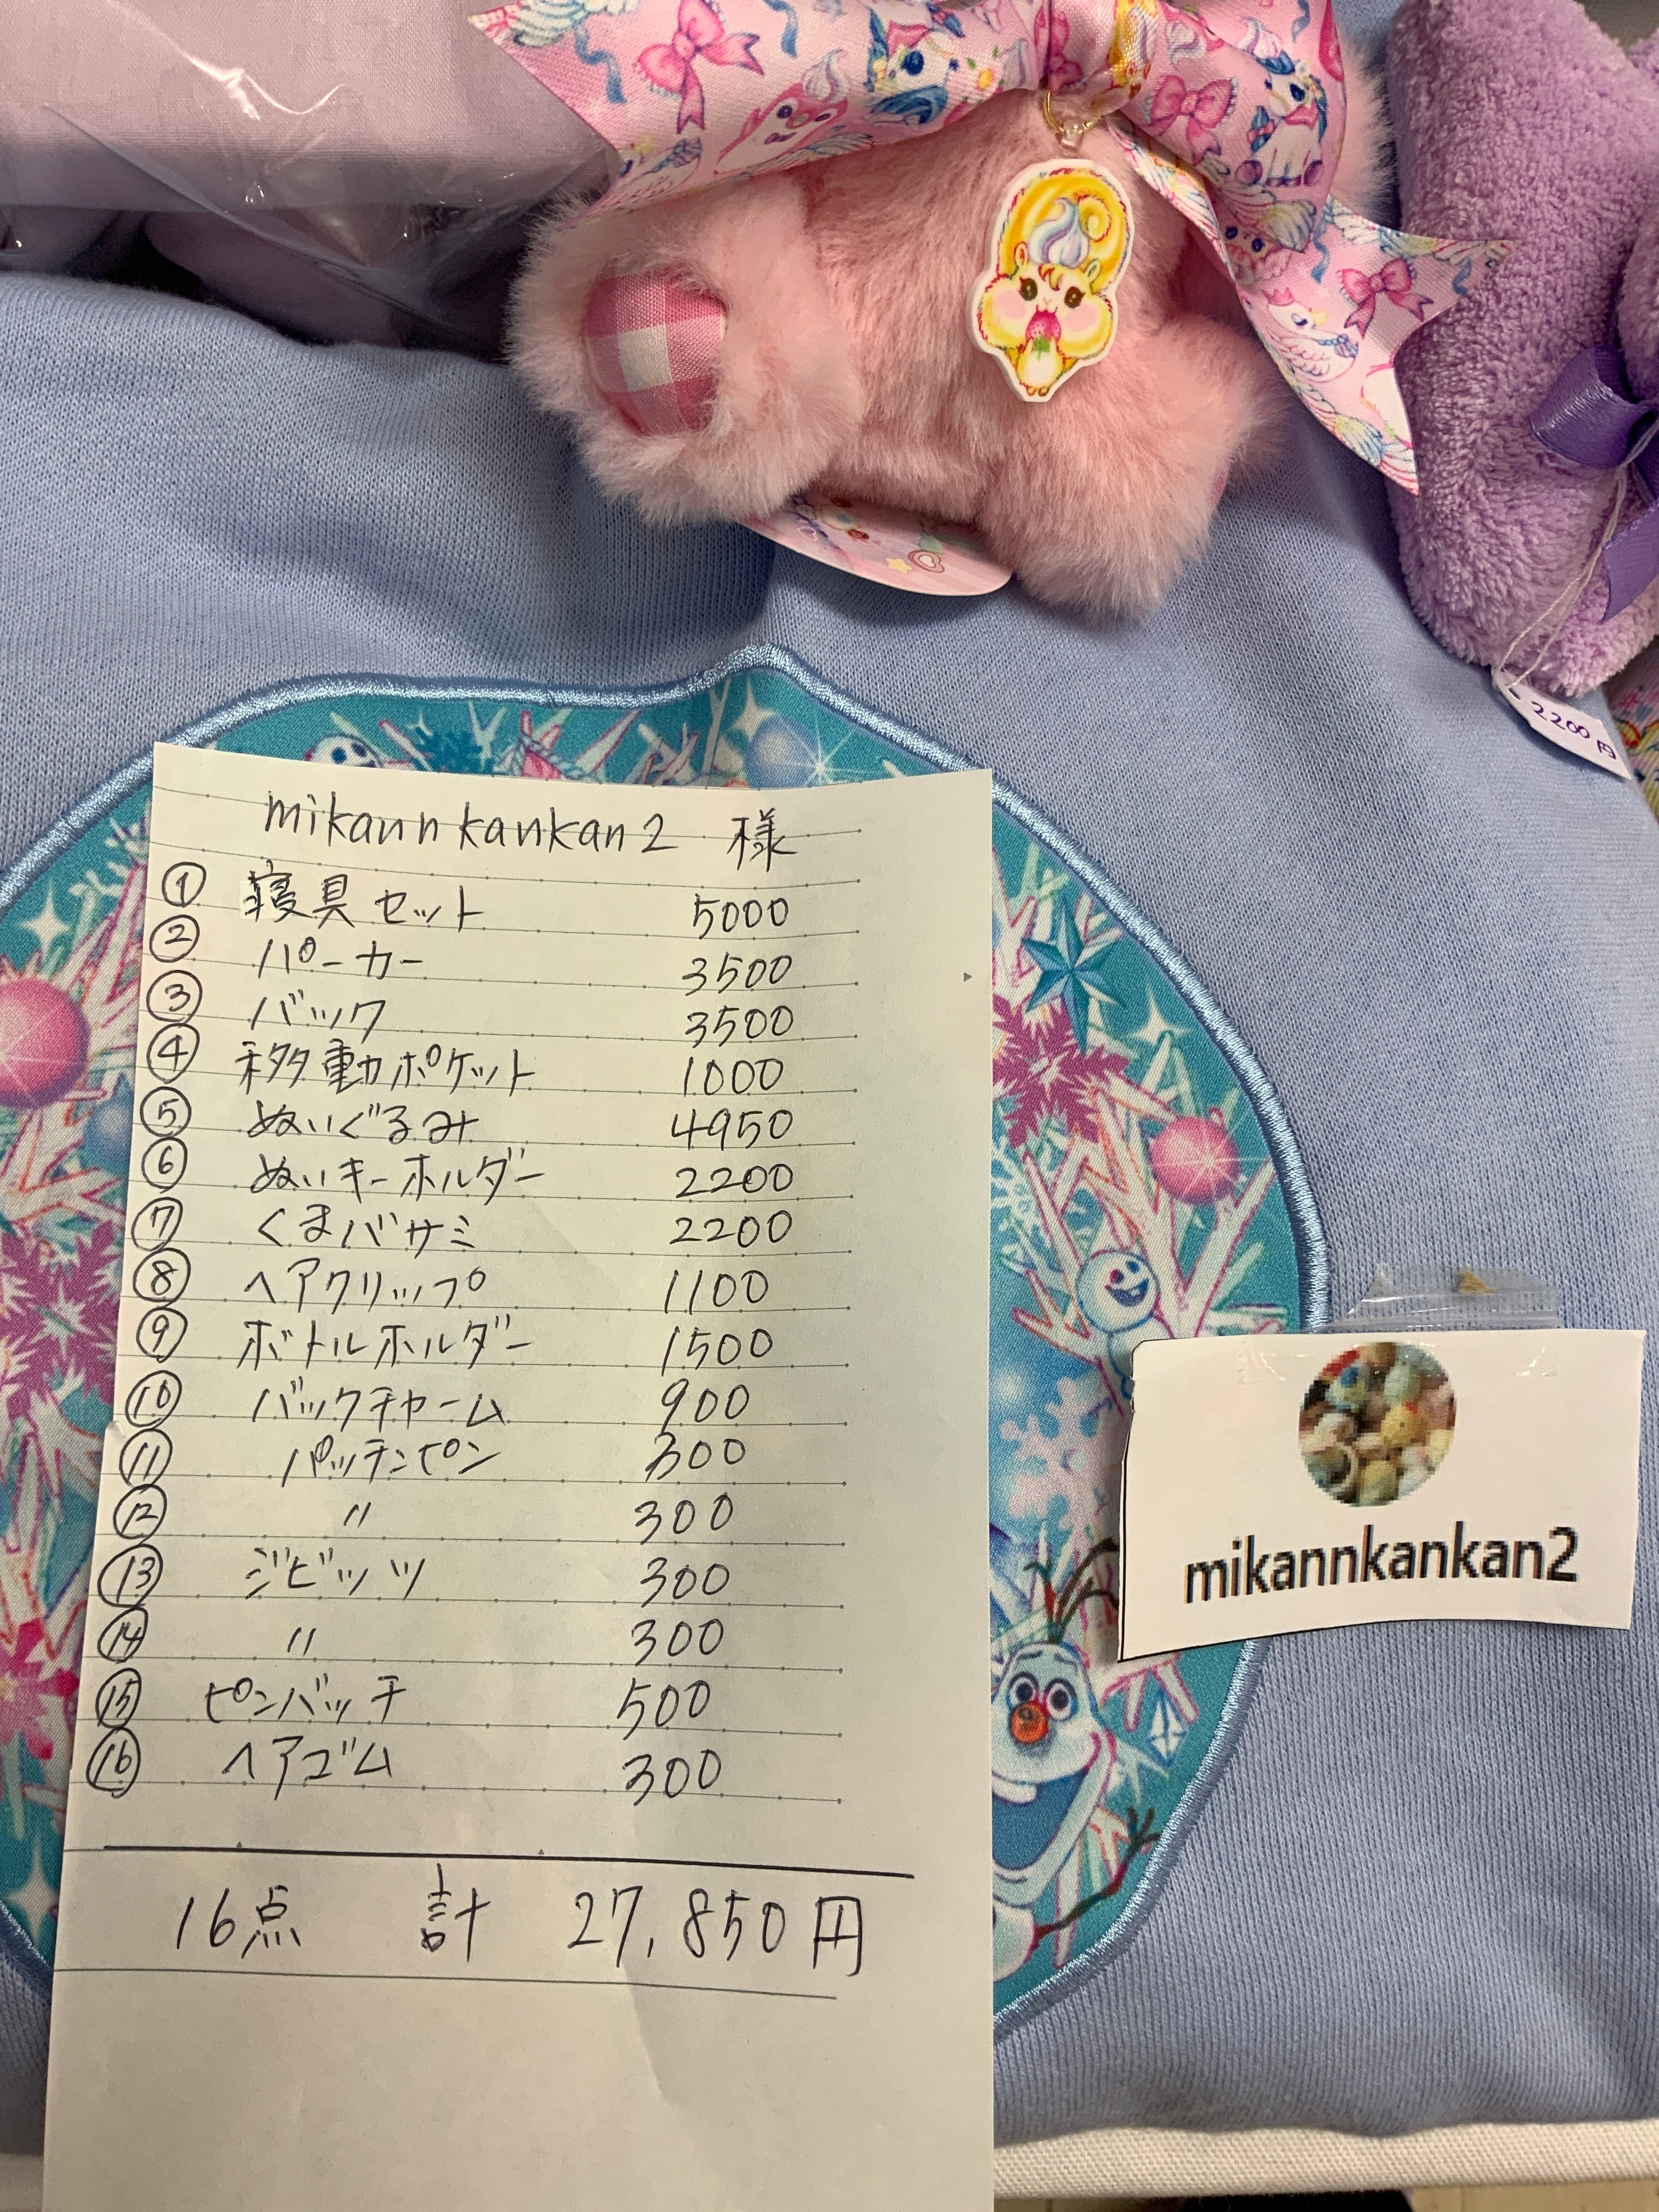 2200円
mikannkankan2 様
① 寝具セット 5000
② パーカー 3500
③ バック 3500
④ 移動ポケット 1000
⑤ ぬいぐるみ 4950
⑥ ぬいキーホルダー 2200
⑦ くまバサミ 2200
⑧ ヘアクリップ 1100
⑨ ボトルホルダー 1500
⑩ バックチャーム 900
⑪ パッチンピン 300
⑫ 〃 300
⑬ ジビッツ 300
⑭ 〃 300
⑮ ピンバッチ 500
⑯ ヘアゴム 300
16点 計 27,850円
mikannkankan2